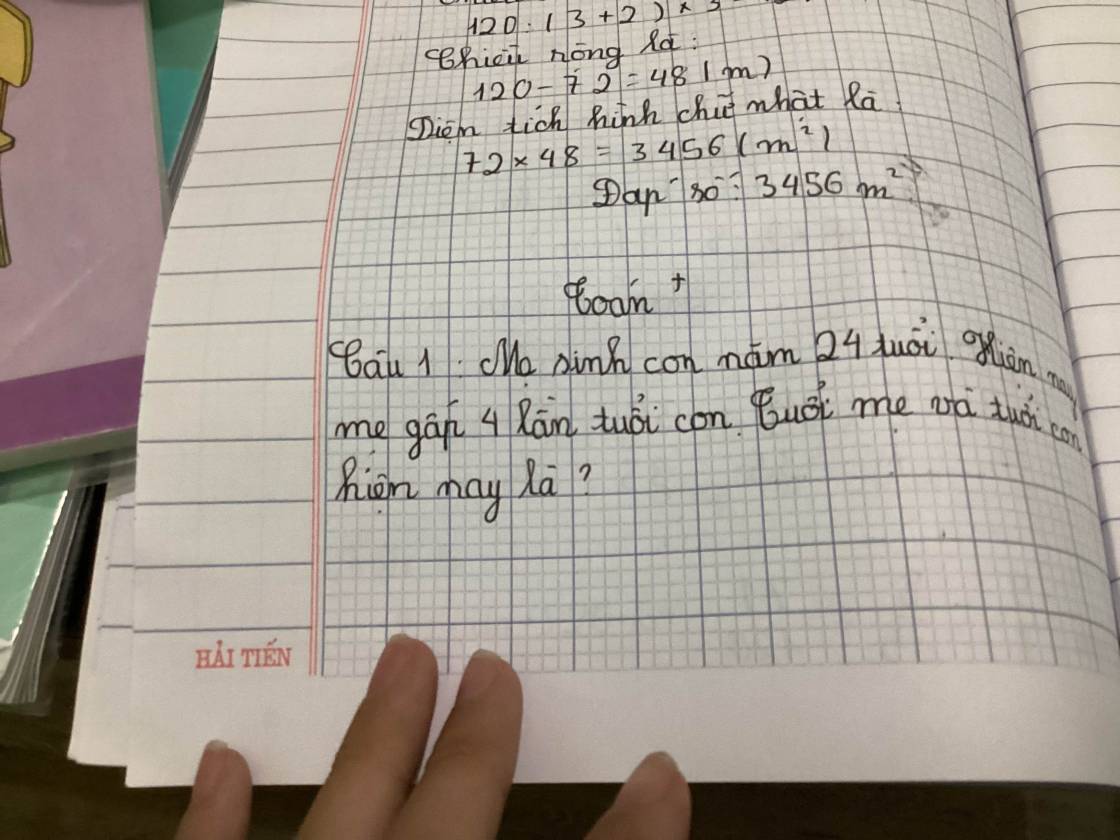 120 : ( 3 + 2 ) × 3
Chiều rộng là :
120 - 72 = 48 ( m )
Diện tích hình chữ nhật là :
72 × 48 = 3456 ( m² )
Đáp số : 3456 m²
Toán +
Câu 1 : Mẹ sinh con năm 24 tuổi. Hiện nay
mẹ gấp 4 lần tuổi con. Tuổi mẹ và tuổi con
hiện nay là ?
HẢI TIẾN